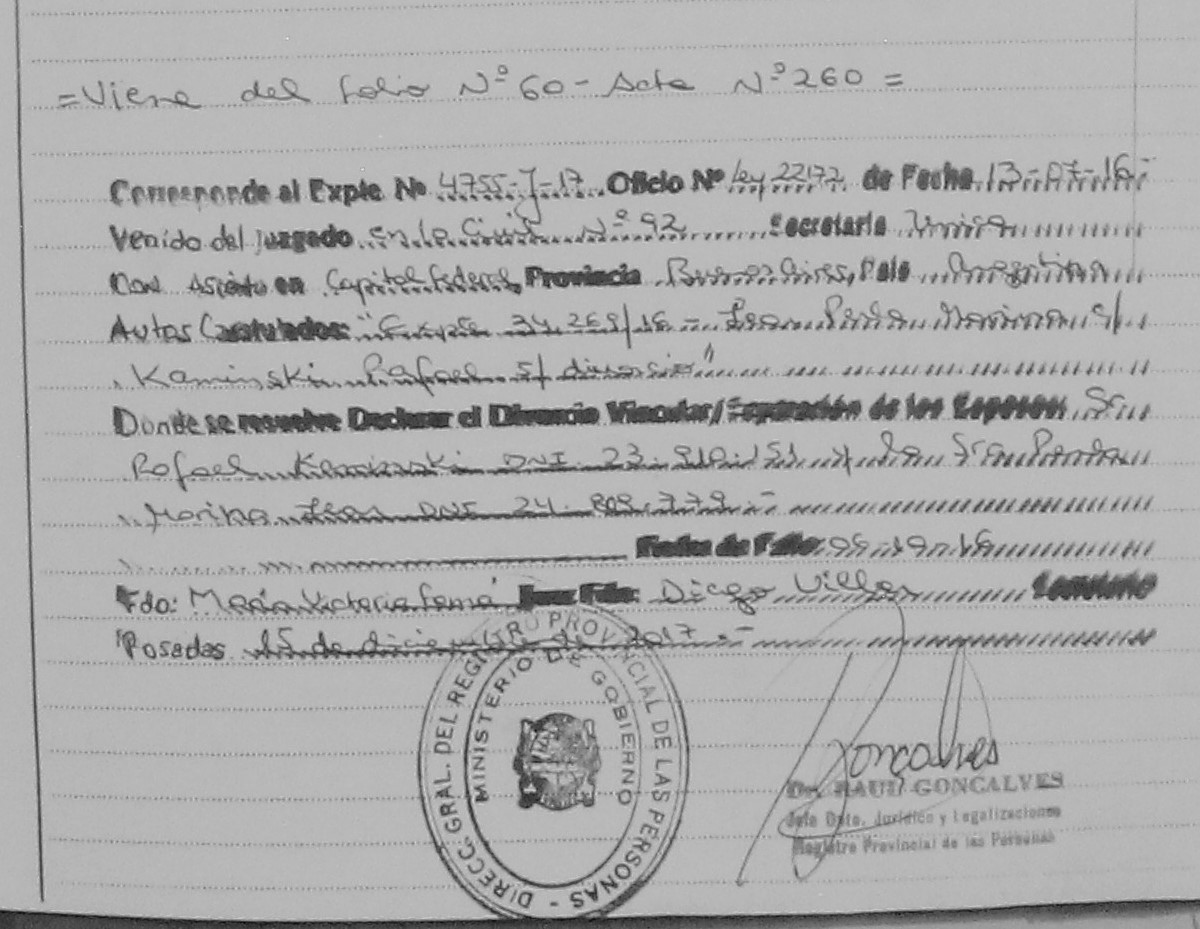 =Viene del folio Nº 60 - Acta Nº 260 =
Corresponde al Expte. No 4755-J-17 Oficio Nº Ley 22172 de Fecha 13-07-16-
Venido del Juzgado en lo Civil Nº 92 Secretaria Unica
Con Asiento en Capital Federal, Provincia Buenos Aires, País Argentina
Autos Caratulados: "Expte 34.269/16 - Perla Marina c/
Kaminski Rafael s/ divorcio"
Donde se resuelve Declarar el Divorcio Vincular/Separación de los Esposos Sr
Rafael Kaminski DNI 23. .151 y la Sra Perla
Marina DNI 24. 809.779.-
Fecha de Fallo: -10-16
Fdo: María Victoria Famá Juez Fdo: Diego Villar Secretario
Posadas 15 de diciembre de 2017.-
DIRECC. GRAL. DEL REGISTRO PROVINCIAL DE LAS PERSONAS -
MINISTERIO DE GOBIERNO
Goncalves
Dr. RAUL GONCALVES
Jefe Dpto. Jurídico y Legalizaciones
Registro Provincial de las Personas